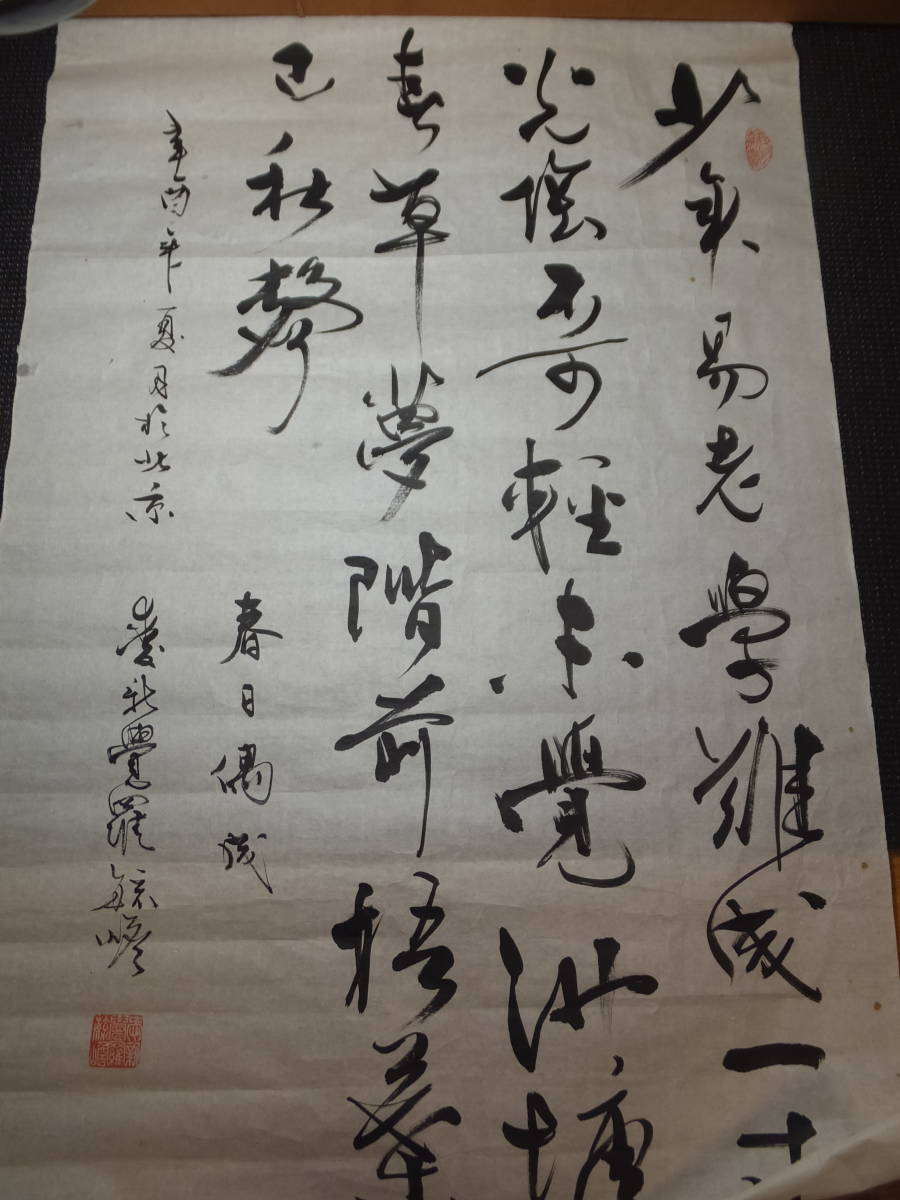 少年易老學難成一寸
光陰不可輕未覺池塘
春草夢階前梧葉
已秋聲
春日偶成
辛酉年夏月於北京
愛新覺羅毓嶦